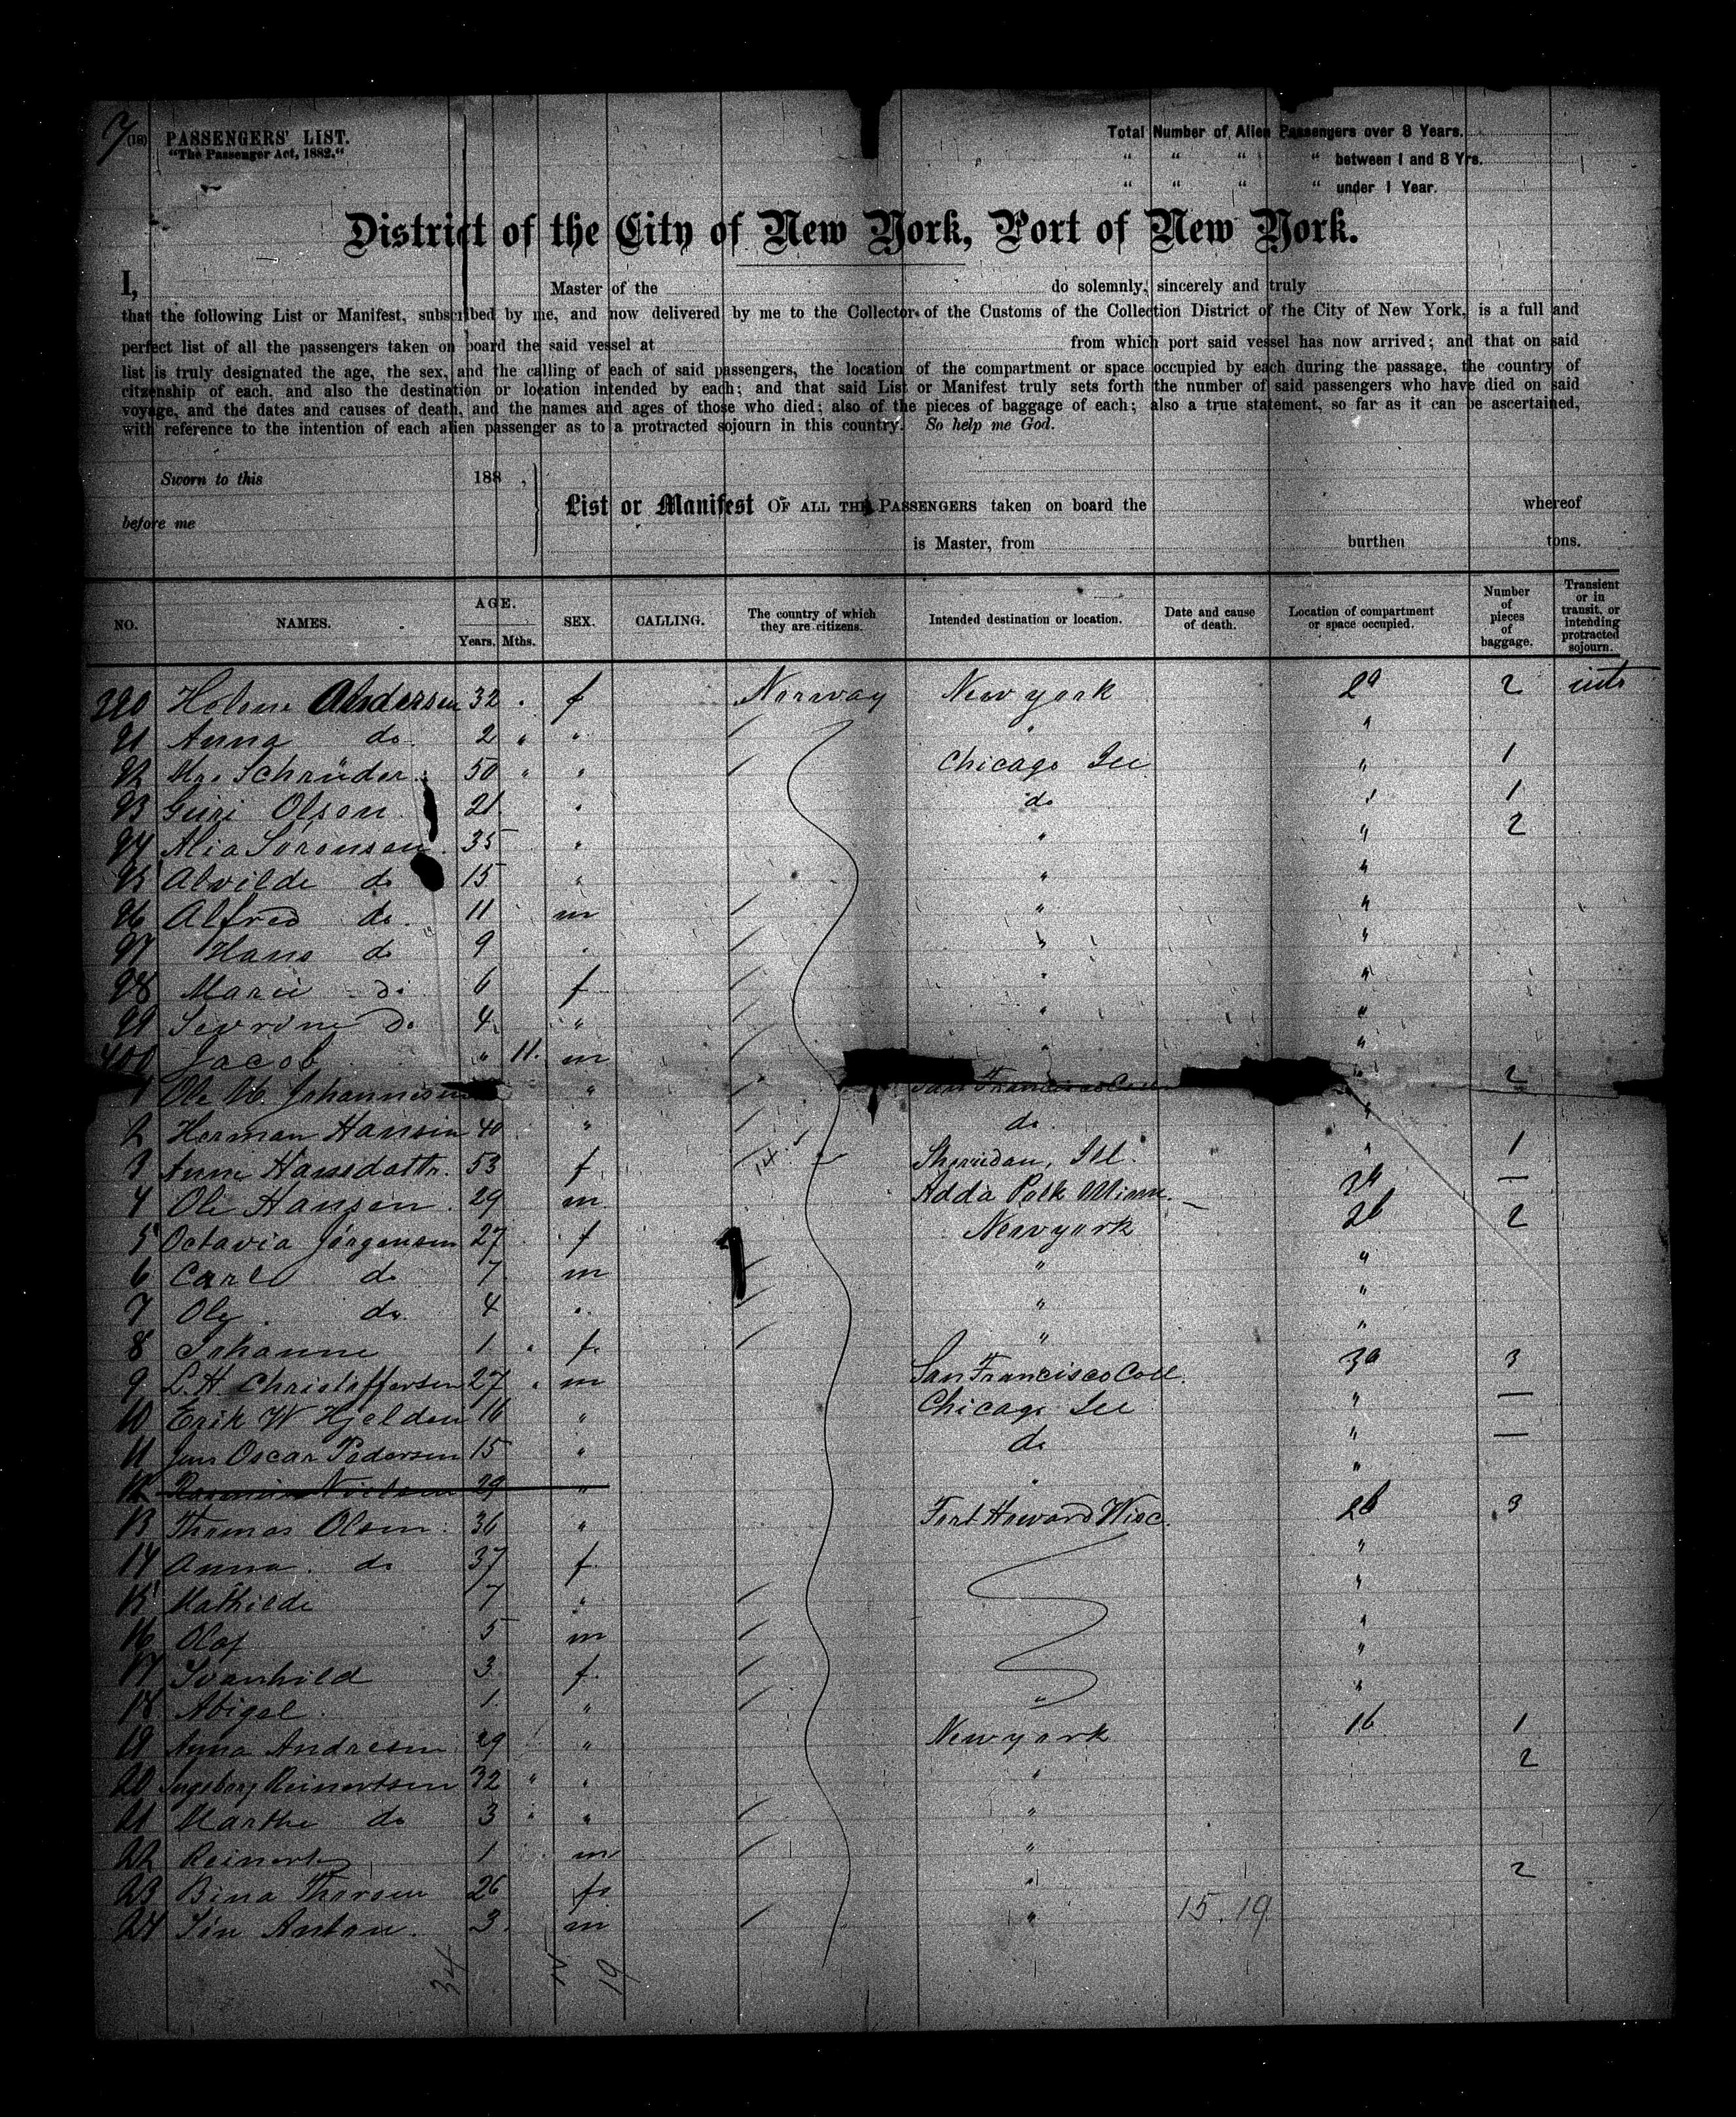 7 (18) PASSENGERS' LIST.
"The Passenger Act, 1882."
Total Number of Alien Passengers over 8 Years.
" " " " between 1 and 8 Yrs.
" " " " under 1 Year.
District of the City of New York, Port of New York.
I, Master of the do solemnly, sincerely and truly
that the following List or Manifest, subscribed by me, and now delivered by me to the Collector of the Customs of the Collection District of the City of New York, is a full and
perfect list of all the passengers taken on board the said vessel at from which port said vessel has now arrived; and that on said
list is truly designated the age, the sex, and the calling of each of said passengers, the location of the compartment or space occupied by each during the passage, the country of
citzenship of each, and also the destination or location intended by each; and that said List or Manifest truly sets forth the number of said passengers who have died on said
voyage, and the dates and causes of death, and the names and ages of those who died; also of the pieces of baggage of each; also a true statement, so far as it can be ascertained,
with reference to the intention of each alien passenger as to a protracted sojourn in this country. So help me God.
Sworn to this 188 ,
before me
List or Manifest OF ALL THE PASSENGERS taken on board the whereof
is Master, from burthen tons.
NO. NAMES. AGE. Years. Mths. SEX. CALLING. The country of which they are citizens. Intended destination or location. Date and cause of death. Location of compartment or space occupied. Number of pieces of baggage. Transient or in transit, or intending protracted sojourn.
390 Helene Andersen 32 f Norway New york 2a 2
91 Anna do 2 " " " "
92 Mrs Schrüder 50 " " Chicago Ill " 1
93 Guri Olsen 21 " do " 1
94 Alia Sörensen 35 " " " 2
95 Alvilde do 15 " " "
96 Alfred do 11 m " "
97 Hans do 9 " " "
98 Marie do 6 f " "
99 Sevrine do 4 " " "
400 Jacob " 11 m " "
1 Ole M Johannesen " San Francisco Call " 2
2 Herman Hansen 40 " do "
3 Anne Hansdattr. 53 f Sheridan, Ill. " 1
4 Ole Hansen 29 m Adda Polk Minn. 3a —
5 Octavia Jörgensen 27 f New york 2b 2
6 Carl do 7 m " "
7 Ole do 4 " " "
8 Johanne 1 " f " "
9 L. H Christoffersen 27 m San Francisco Call. 3a 3
10 Erik W Hjelden 16 " Chicago Ill " —
11 Jens Oscar Pedersen 15 " do " —
12 Rasmus Nielsen 29 " " "
13 Thomas Olsen 36 " Fort Howard Wisc. 2b 3
14 Anna do 37 f "
15 Mathilde 7 " "
16 Olaf 5 m "
17 Svanhild 3 f "
18 Abigel 1 " " "
19 Anna Andresen 29 " New york 1b 1
20 Ingeborg Reinertsen 32 " " " 2
21 Marthe do 3 " " "
22 Reinert 1 m "
23 Bina Thorsen 26 f " 2
24 Anton 3 m " 15.19
34 19